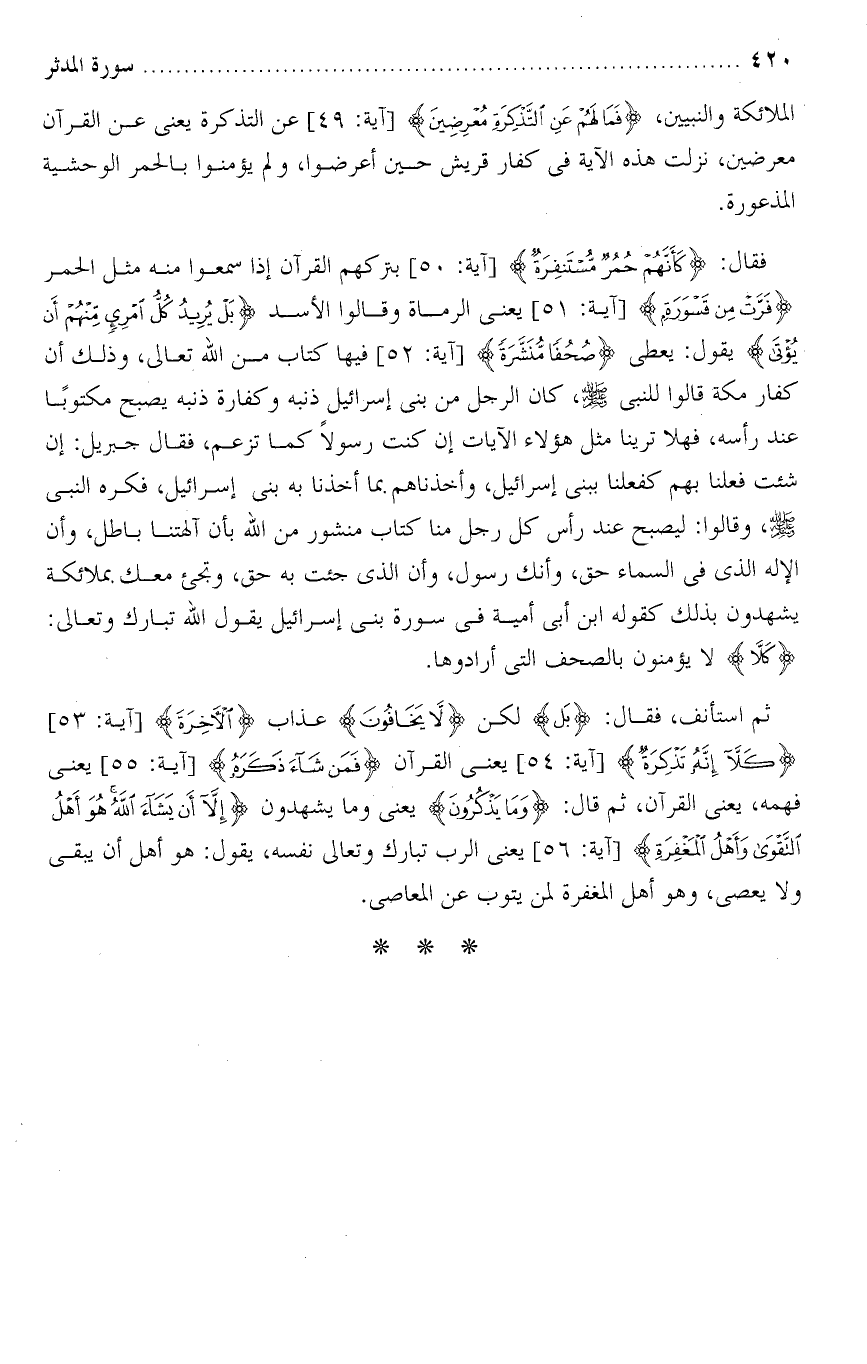 ٤٢٠ ........................................................................ سورة المدثر
الملائكة والنبيين، ﴿فَمَا لَهُمْ عَنِ ٱلتَّذْكِرَةِ مُعْرِضِينَ﴾ [آية: ٤٩] عن التذكرة يعنى عن القرآن
معرضين، نزلت هذه الآية فى كفار قريش حين أعرضوا، ولم يؤمنوا بالحمر الوحشية
المذعورة.
فقال: ﴿كَأَنَّهُمْ حُمُرٌ مُّسْتَنفِرَةٌ﴾ [آية: ٥٠] بتركهم القرآن إذا سمعوا منه مثل الحمر
﴿فَرَّتْ مِن قَسْوَرَةٍ﴾ [آية: ٥١] يعنى الرماة وقالوا الأسد ﴿بَلْ يُرِيدُ كُلُّ ٱمْرِئٍ مِّنْهُمْ أَن
يُؤْتَىٰ﴾ يقول: يعطى ﴿صُحُفًا مُّنَشَّرَةً﴾ [آية: ٥٢] فيها كتاب من الله تعالى، وذلك أن
كفار مكة قالوا للنبى ﷺ، كان الرجل من بنى إسرائيل ذنبه وكفارة ذنبه يصبح مكتوبًا
عند رأسه، فهلا ترينا مثل هؤلاء الآيات إن كنت رسولاً كما تزعم، فقال جبريل: إن
شئت فعلنا بهم كفعلنا ببنى إسرائيل، وأخذناهم بما أخذنا به بنى إسرائيل، فكره النبى
ﷺ، وقالوا: ليصبح عند رأس كل رجل منا كتاب منشور من الله بأن آلهتنا باطل، وأن
الإله الذى فى السماء حق، وأنك رسول، وأن الذى جئت به حق، وتجئ معك بملائكة
يشهدون بذلك كقوله ابن أبى أمية فى سورة بنى إسرائيل يقول الله تبارك وتعالى:
﴿كَلَّا﴾ لا يؤمنون بالصحف التى أرادوها.
ثم استأنف، فقال: ﴿بَل﴾ لكن ﴿لَّا يَخَافُونَ﴾ عذاب ﴿ٱلْأَخِرَةَ﴾ [آية: ٥٣]
﴿كَلَّآ إِنَّهُۥ تَذْكِرَةٌ﴾ [آية: ٥٤] يعنى القرآن ﴿فَمَن شَآءَ ذَكَرَهُۥ﴾ [آية: ٥٥] يعنى
فهمه، يعنى القرآن، ثم قال: ﴿وَمَا يَذْكُرُونَ﴾ يعنى وما يشهدون ﴿إِلَّآ أَن يَشَآءَ ٱللَّهُ هُوَ أَهْلُ
ٱلتَّقْوَىٰ وَأَهْلُ ٱلْمَغْفِرَةِ﴾ [آية: ٥٦] يعنى الرب تبارك وتعالى نفسه، يقول: هو أهل أن يبقى
ولا يعصى، وهو أهل المغفرة لمن يتوب عن المعاصى.
* * *